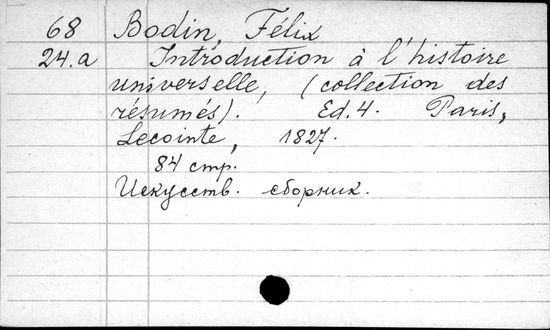 68 Bodin, Félix
24.a Introduction à l'histoire
universelle, (collection des
résumés). Ed. 4. Paris,
Lecointe, 1827.
84 стр.
Искусств. сборник.